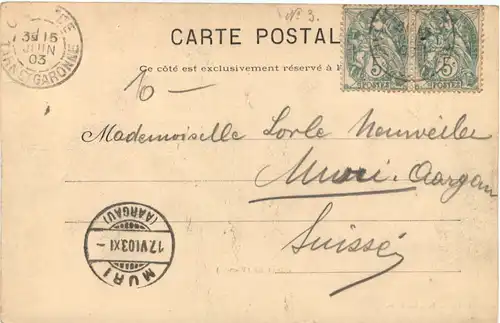 No. 3.
CARTE POSTAL
Ce côté est exclusivement réservé à l'
5c 5c
POSTES POSTES
3E 15
JUIN
03
TARN-ET-GARONNE
10 —
Mademoiselle Lorle Neuweiler
Muri. Aargau
Suisse
(AARGAU)
17.VI.03.XI-
MURI